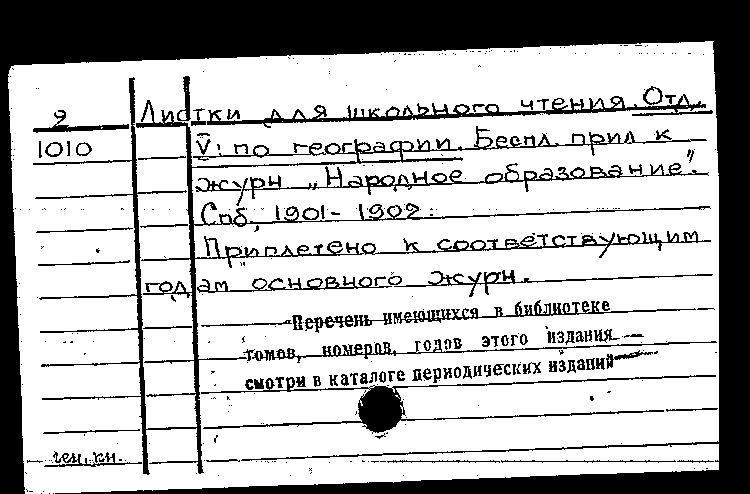 9 Листки для школьного чтения. Отд.
1010 V: по географии. Беспл. прил. к
журн. „Народное образование".
Спб, 1901 - 1902.
Приплетено к соответствующим
годам основного журн.
Перечень имеющихся в библиотеке
томов, номеров, годов этого издания
смотри в каталоге периодических изданий
ген. кн.